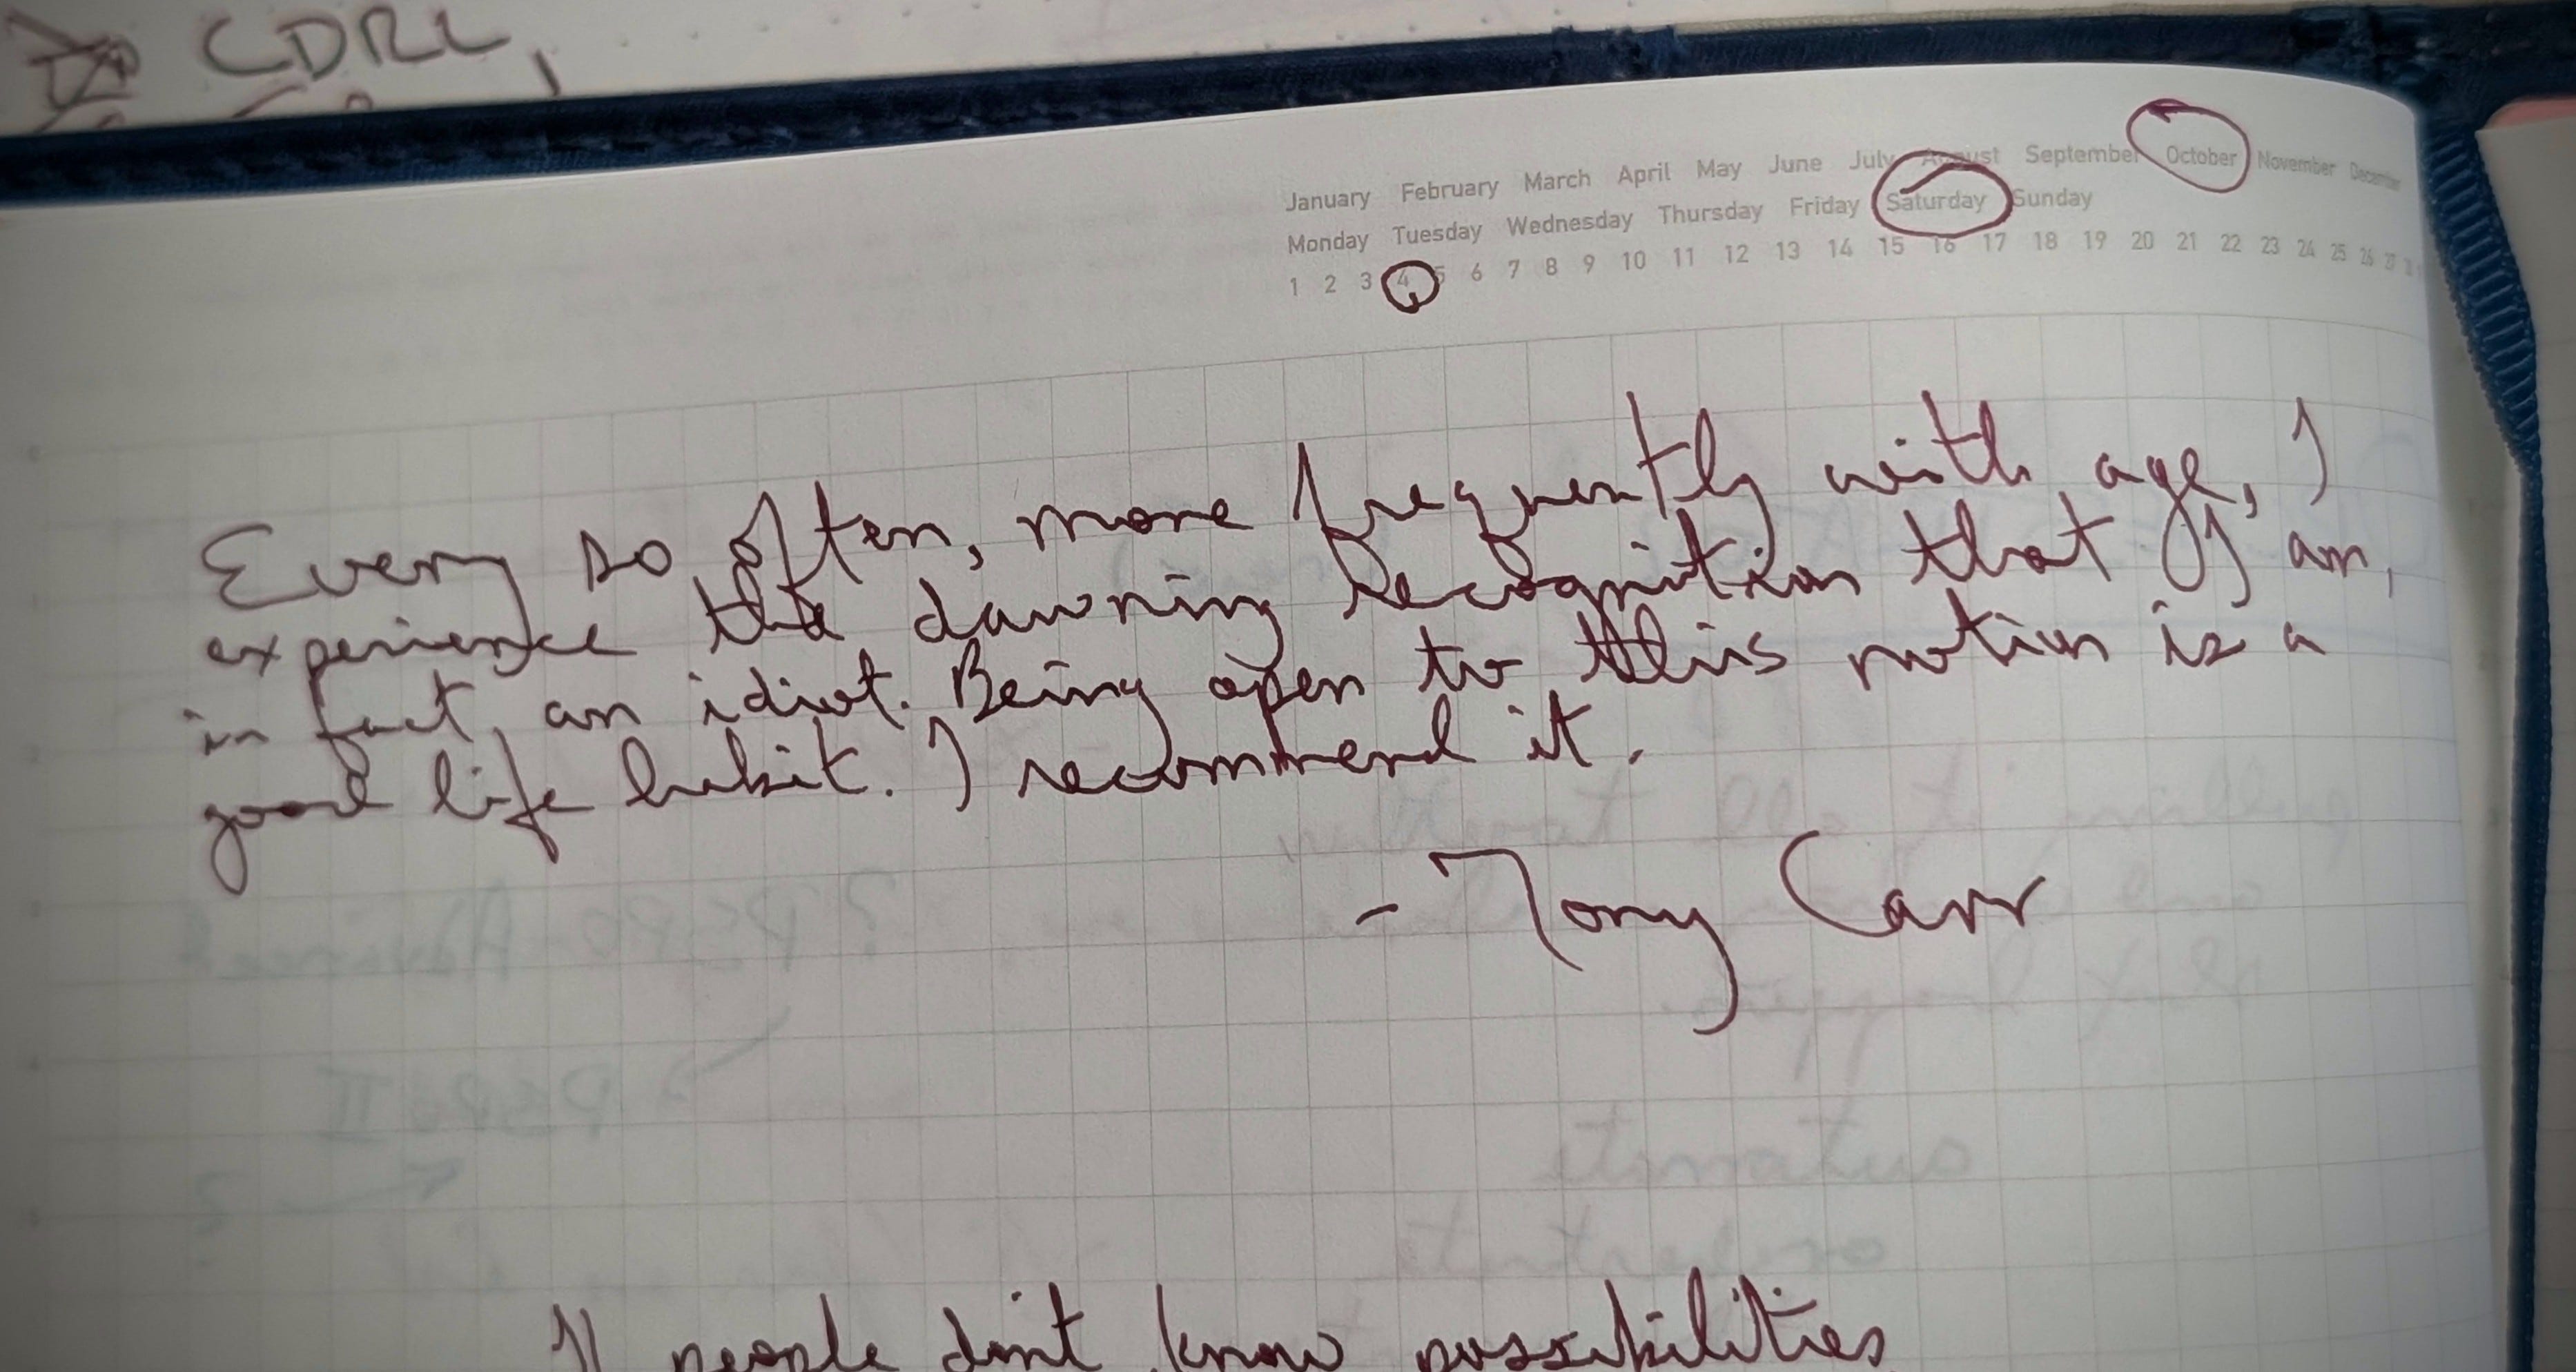 CDRL,
January February March April May June July August September October November December
Monday Tuesday Wednesday Thursday Friday Saturday Sunday
1 2 3 4 5 6 7 8 9 10 11 12 13 14 15 16 17 18 19 20 21 22 23 24 25 26 27
Every so often, more frequently with age, I
experience the dawning recognition that I am,
in fact, an idiot. Being open to this notion is a
good life habit. I recommend it.
- Tony Carr
If people don't know possibilities